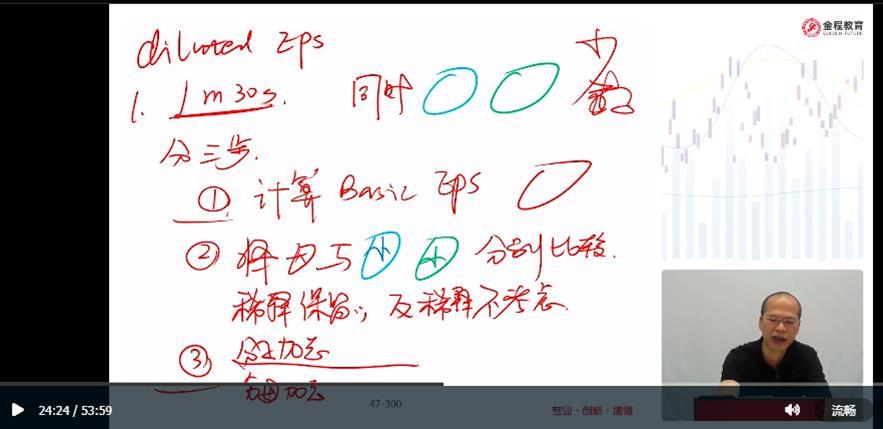 金程教育
GOLDEN FUTURE
diluted Eps
1. 1m30s. 同时
分三步.
① 计算 Basic Eps
② 将母与小小分别比较.
稀释保留, 反稀释不考虑
③ 分子加总
分母加总
47-300
专业·创新·增值
24:24 / 53:59
流畅